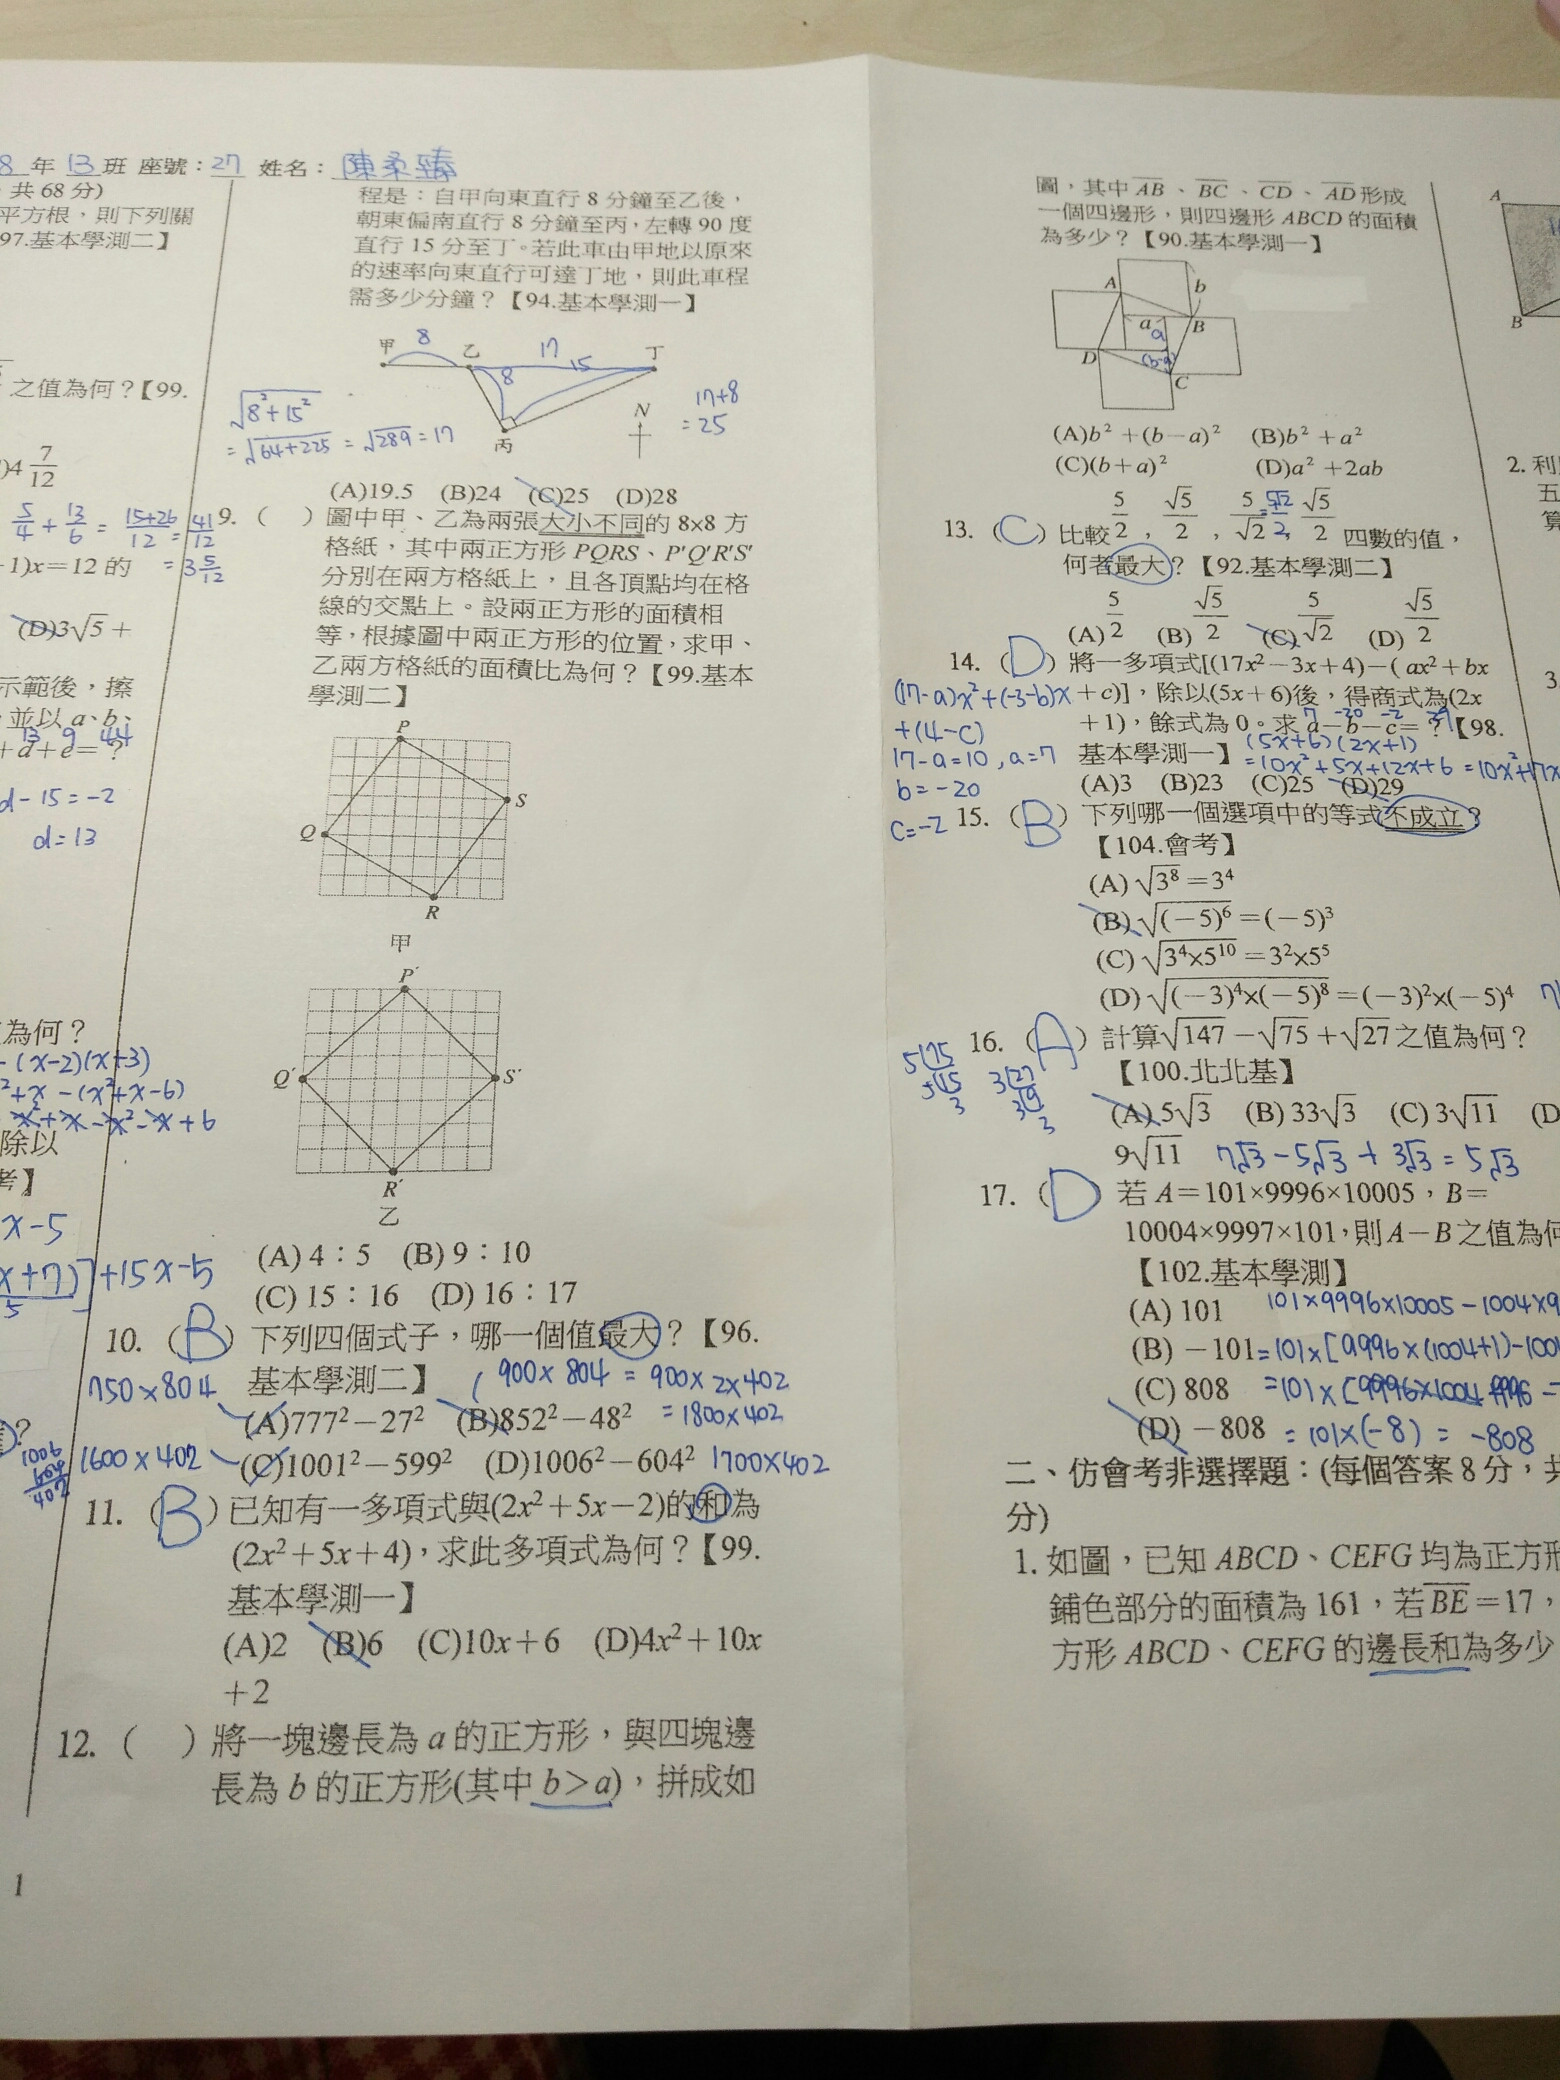 8 年 13 班 座號：27 姓名：陳柔臻
共 68 分)
平方根，則下列關
97.基本學測二】
之值為何？【99.
)4 7/12
5/4 + 13/6 = 15+26/12 = 41/12
= 3 5/12
-1)x＝12 的
(D)3√5＋
示範後，擦
並以 a、b、
13 9 44
+d+e=？
d-15=-2
d=13
為何？
-(x-2)(x+3)
²+x-(x²+x-6)
x²+x-x²-x+6
除以
考】
x-5
x+7)]+15x-5
5
程是：自甲向東直行 8 分鐘至乙後，
朝東偏南直行 8 分鐘至丙，左轉 90 度
直行 15 分至丁。若此車由甲地以原來
的速率向東直行可達丁地，則此車程
需多少分鐘？【94.基本學測一】
甲 8 乙 17 丁
8 15
丙 N
√8²+15²
=√64+225 = √289 = 17
17+8
=25
(A)19.5 (B)24 (C)25 (D)28
9.（ ）圖中甲、乙為兩張大小不同的 8×8 方
格紙，其中兩正方形 PQRS、P'Q'R'S'
分別在兩方格紙上，且各頂點均在格
線的交點上。設兩正方形的面積相
等，根據圖中兩正方形的位置，求甲、
乙兩方格紙的面積比為何？【99.基本
學測二】
P
S
Q
R
甲
P'
Q' S'
R'
乙
(A) 4：5 (B) 9：10
(C) 15：16 (D) 16：17
10.（B）下列四個式子，哪一個值最大？【96.
基本學測二】
750×804
900×804 = 900×2×402
(A)777²－27² (B)852²－48² =1800×402
1600×402 (C)1001²－599² (D)1006²－604² 1700×402
1006
604
402
11.（B）已知有一多項式與(2x²＋5x－2)的和為
(2x²＋5x＋4)，求此多項式為何？【99.
基本學測一】
(A)2 (B)6 (C)10x＋6 (D)4x²＋10x
＋2
12.（ ）將一塊邊長為 a 的正方形，與四塊邊
長為 b 的正方形(其中 b＞a)，拼成如
1
圖，其中 AB、BC、CD、AD 形成
一個四邊形，則四邊形 ABCD 的面積
為多少？【90.基本學測一】
A b
a B
a
D (b-a)
C
(A)b²＋(b－a)² (B)b²＋a²
(C)(b＋a)² (D)a²＋2ab
13.（C）比較 5/2，√5/2，5/√2 = 5√2/2，√5/2 四數的值，
何者最大？【92.基本學測二】
(A) 5/2 (B) √5/2 (C) 5/√2 (D) √5/2
14.（D）將一多項式[(17x²－3x＋4)－( ax²＋bx
＋c)]，除以(5x＋6)後，得商式為(2x
＋1)，餘式為 0。求 a－b－c＝？【98.
基本學測一】
7 -20 -2 29
(17-a)x²+(-3-b)x
+(4-c)
17-a=10，a=7
b=-20
c=-2
(5x+6)(2x+1)
=10x²+5x+12x+6 = 10x²+17x
(A)3 (B)23 (C)25 (D)29
15.（B）下列哪一個選項中的等式不成立？
【104.會考】
(A) √3⁸＝3⁴
(B) √(－5)⁶＝(－5)³
(C) √3⁴×5¹⁰＝3²×5⁵
(D) √(－3)⁴×(－5)⁸＝(－3)²×(－5)⁴
16.（A）計算√147－√75＋√27之值為何？
【100.北北基】
5 75
5 15
3
3 27
3 9
3
(A) 5√3 (B) 33√3 (C) 3√11 (D
9√11
7√3-5√3+3√3=5√3
17.（D）若 A＝101×9996×10005，B＝
10004×9997×101，則 A－B 之值為何
【102.基本學測】
(A) 101 101×9996×10005-1004×9
(B) －101 =101×[9996×(1004+1)-100
(C) 808 =101×[9996×1004
(D) －808 =101×(-8) = -808
二、仿會考非選擇題：(每個答案 8 分，共
分)
1. 如圖，已知 ABCD、CEFG 均為正方形
鋪色部分的面積為 161，若BE＝17，
方形 ABCD、CEFG 的邊長和為多少
A
B
2. 利
五
算
3